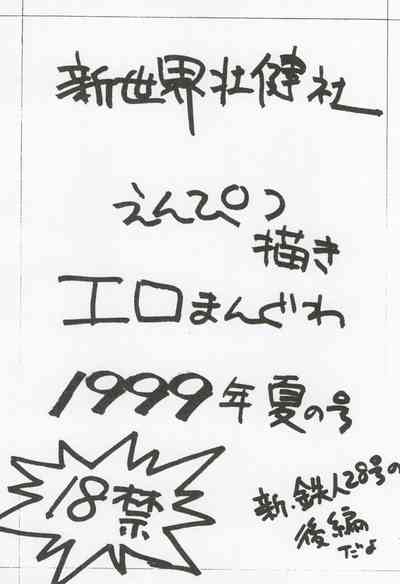 新世界壮健社
えんぴつ
描き
エロまんぐわ
1999年夏の号
18禁
新.鉄人28号の
後編
だよ